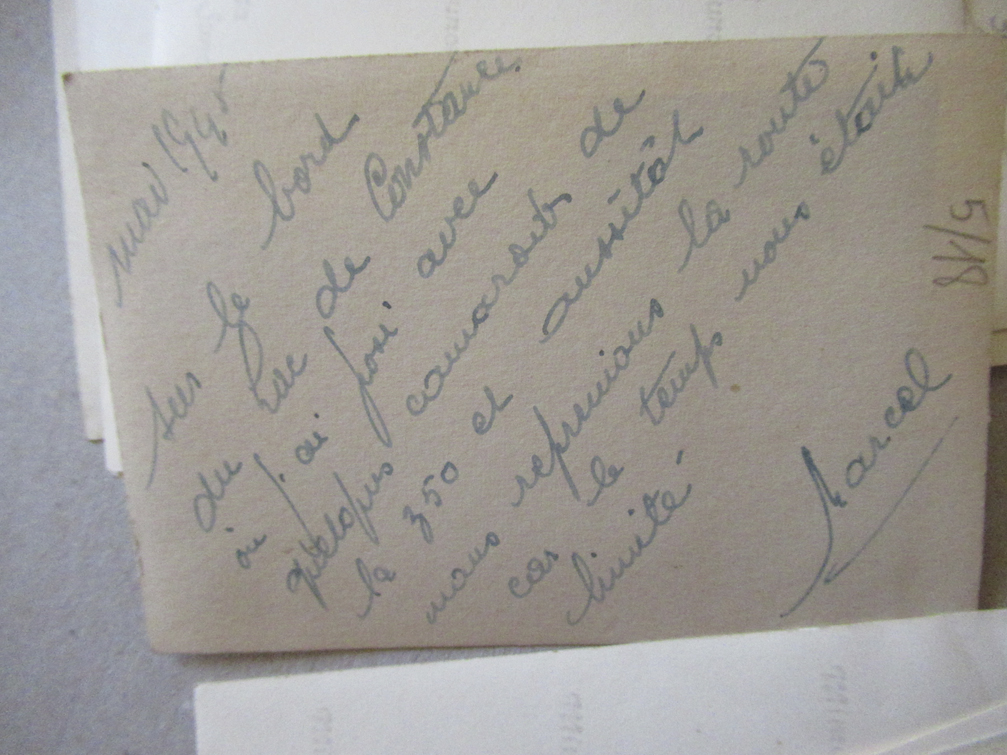 mai 1945
Sur le bord
du Lac de Constance
où j'ai posé avec
quelques camarads de
la 350 et aussitôt
nous reprenions la route
car le temps nous étaik
limité
Marcel
5/18